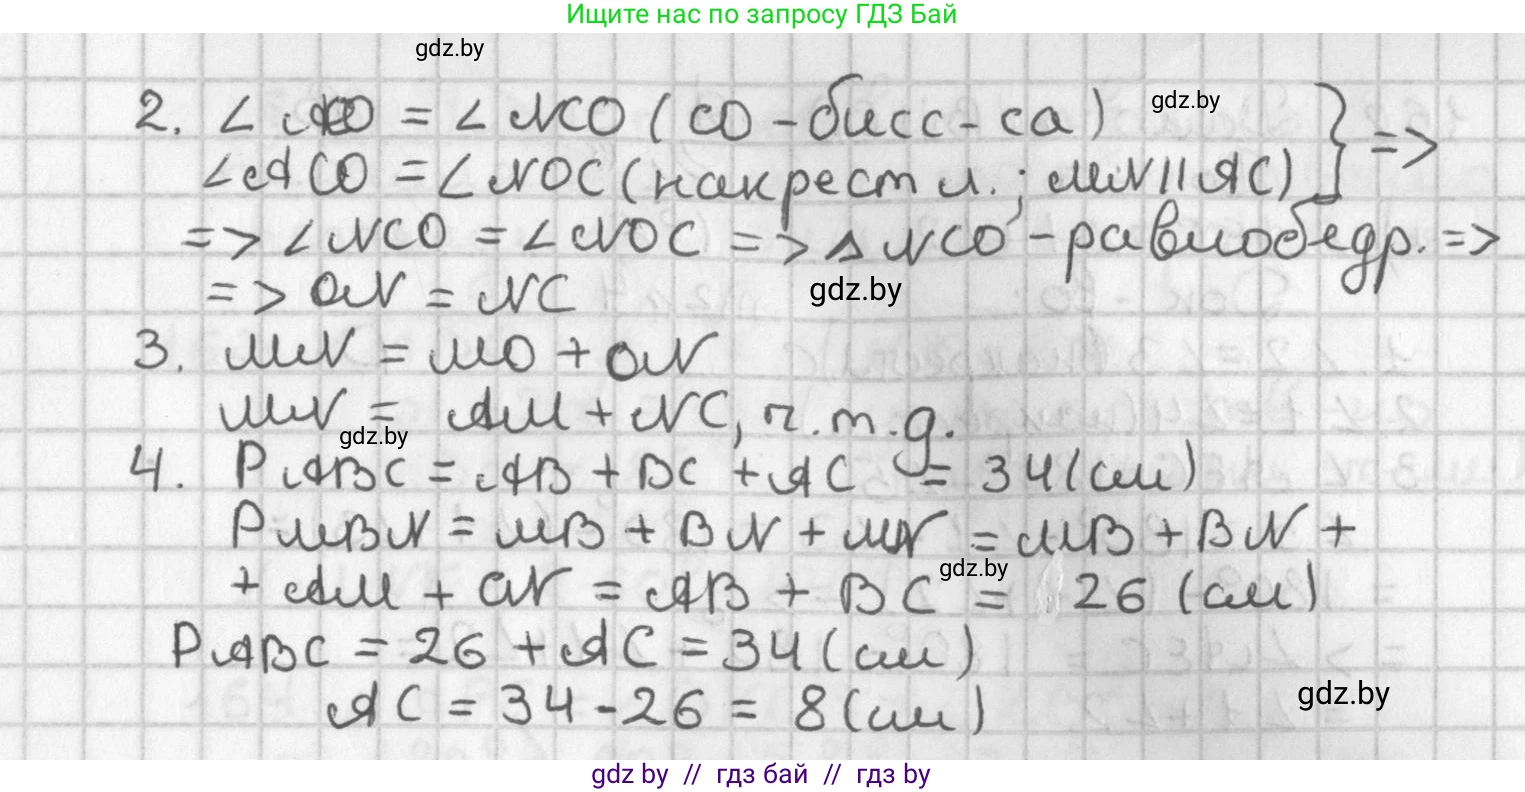 Ищите нас по запросу ГДЗ Бай
gdz.by
2. ∠ACO = ∠NCO (CO - бисс-са) gdz.by } =>
∠ACO = ∠NOC (накрест л.; MN || AC)
=> ∠NCO = ∠NOC => △ NCO - равнобедр. =>
=> ON = NC gdz.by
3. MN = MO + ON
MN = AM + NC, ч.т.д.
gdz.by
4. PABC = AB + BC + AC = 34 (см)
PMBN = MB + BN + MN = MB + BN +
gdz.by
+ AM + ON = AB + BC = 26 (см)
PABC = 26 + AC = 34 (см)
AC = 34 - 26 = 8 (см)
gdz.by
gdz by // гдз бай // гдз by